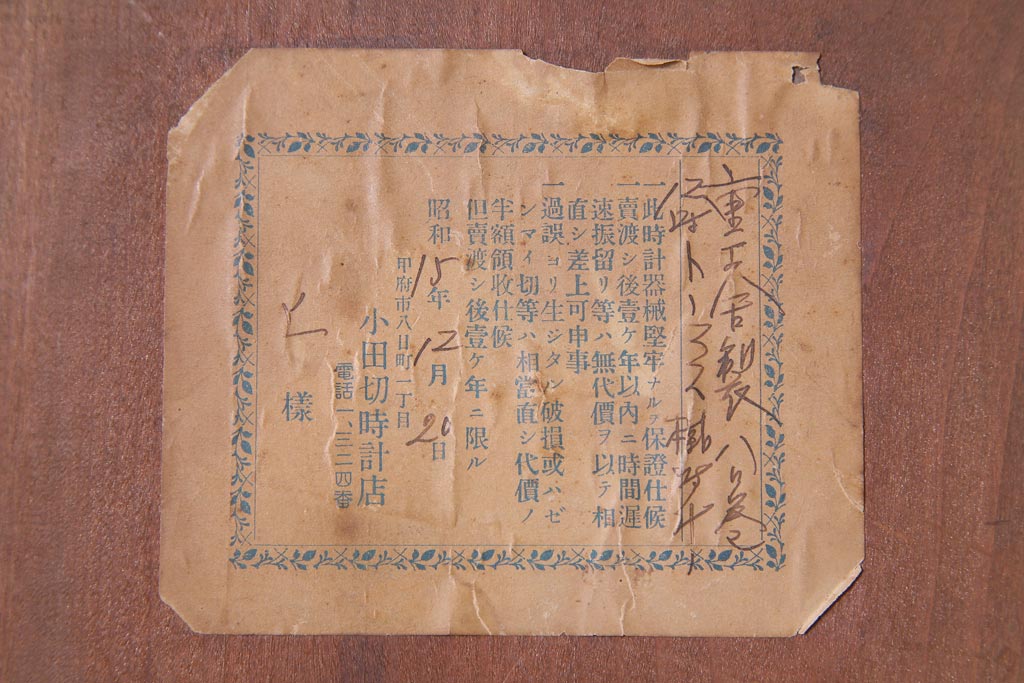 重工舎製 八日巻
12吋トーマス掛時計
一此時計器械堅牢ナルヲ保證仕候
一賣渡シ後壹ケ年以內ニ時間遲
速振留リ等ハ無代價ヲ以テ相
直シ差上可申事
一過誤ヨリ生ジタル破損或ハゼ
ンマイ切等ハ相當直シ代價ノ
半額領收仕候
但賣渡シ後壹ケ年ニ限ル
昭和15年12月20日
甲府市八日町一丁目
小田切時計店
電話一、三二四番
上 樣